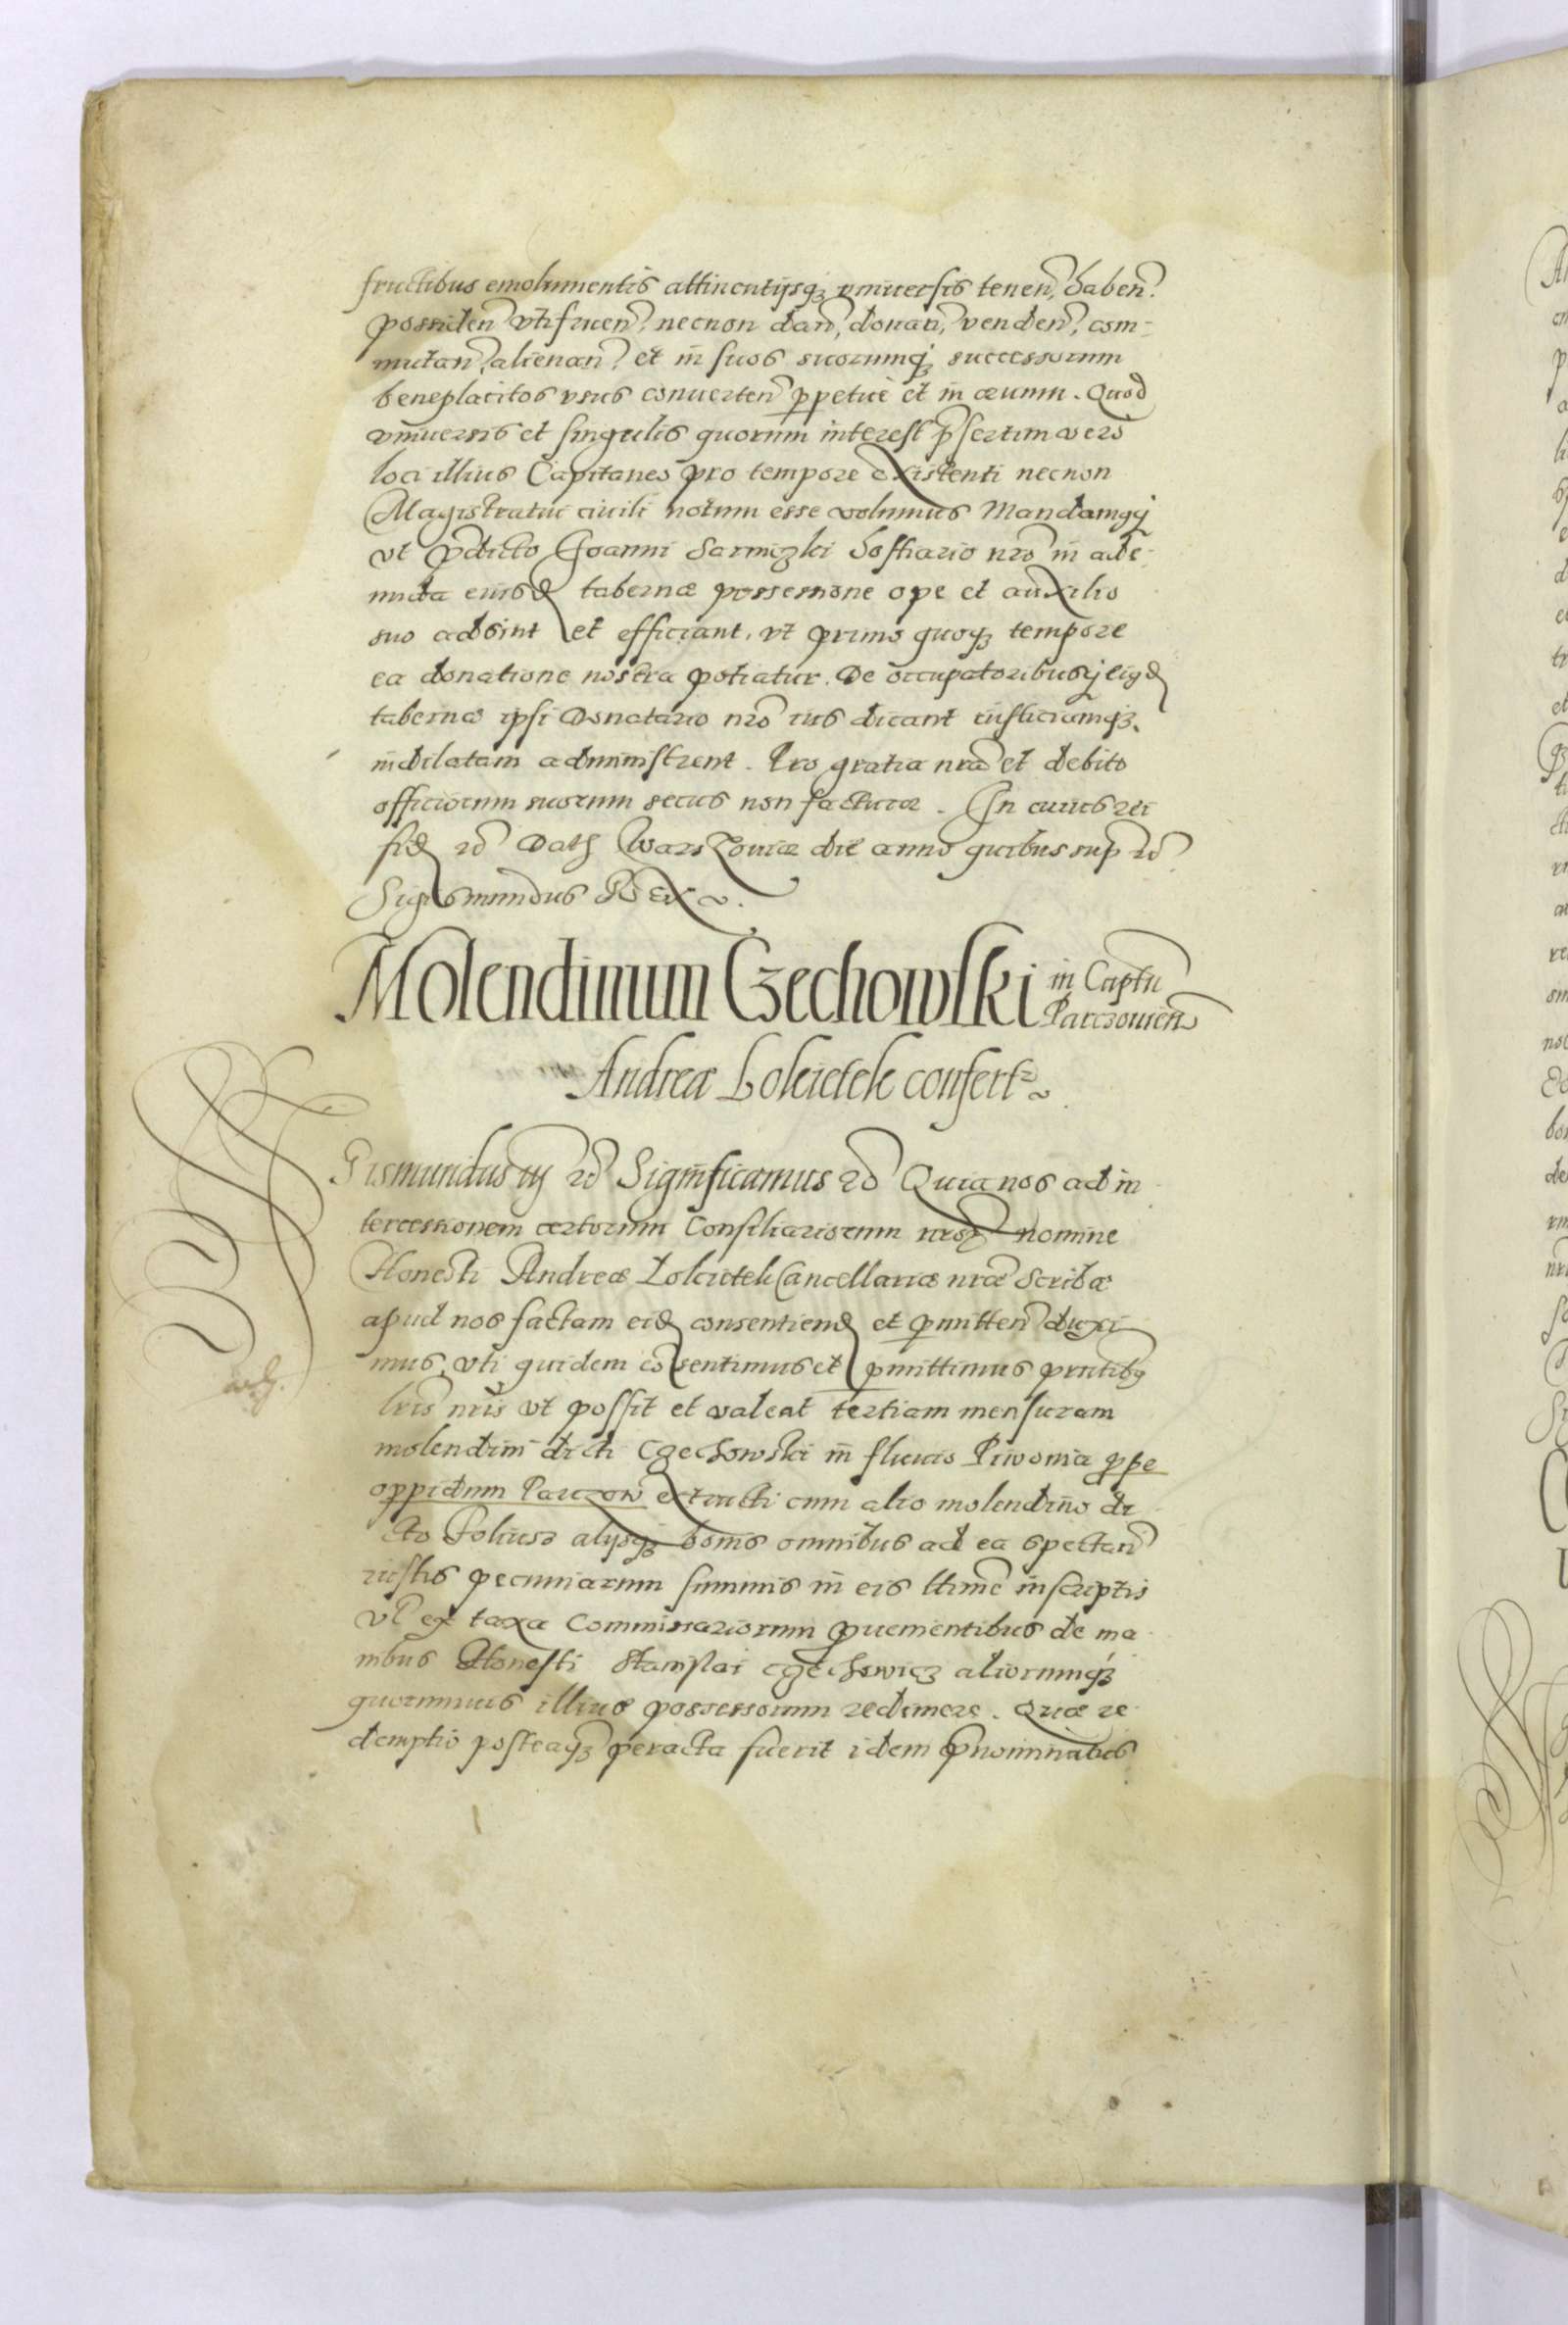 fructibus emolumentis attinentijsq₃ vniuersis tenen̄, haben̄.
possiden̄ vtifruen̄, necnon dan̄, donan̄, venden̄, com-
mutan̄, alienan̄, et in suos suorumq₃ successorum
beneplacitos vsus conuerten̄ ꝑpetuè et in æuum. Quod
vniuersis et singulis quorum interest p̄sertim vero
loci illius Capitaneo pro tempore existenti necnon
Magistratui ciuili notum esse volumus Mandamq₃
vt p̄dicto Joanni hostiario nr̄o in ade-
unda eiusd tabernæ possessione ope et auxilio
suo adsint et efficiant, vt primo quoq₃ tempore
ea donatione nostra potiatur. De occupatoribusq₃ eiqd
tabernæ ipsi Donatario nr̄o ius dicant iusticiamq₃
indilatam administrent. Pro gratia nr̄a et debito
officiorum suorum secus non facturæ. In cuius rei
fid rc̄ Datȝ Warszouiæ die anno quibus sup̄ rc̄
Sigismundus Rex
Molendinum Czechowski in Captu
Parczouien̄
Andreæ Lokietek confert
Gismundus iij rc̄ Significamus rc̄ Quia nos ad in
tercessionem certorum Consiliariorum nroȝ nomine
Honesti Andreæ Lokietek Cancellariæ nræ Scribæ
apud nos factam eid consentiend et ꝑmitten̄ duxi
mus, vti quidem cōsentimus et ꝑmittimus pn̄tibq₃
lr̄is nr̄is vt possit et valeat tertiam mensuram
molendini dicti Czechowski in fluuio Piwonia ꝓpe
oppidum Parczow extructi cum alio molendino di
cto alijsq₃ bonis omnibus ad ea spectan̄
iustis pecuniarum summis in eis lt̄ime inscriptis
vl̄ ex taxa Commissariorum ꝓuenientibus de ma
nibus Honesti Stanislai Czechowicz aliorumq₃
quorumuis illius possessorum redimere. Quæ re
demptio posteaq₃ peracta fuerit idem p̄nominatus